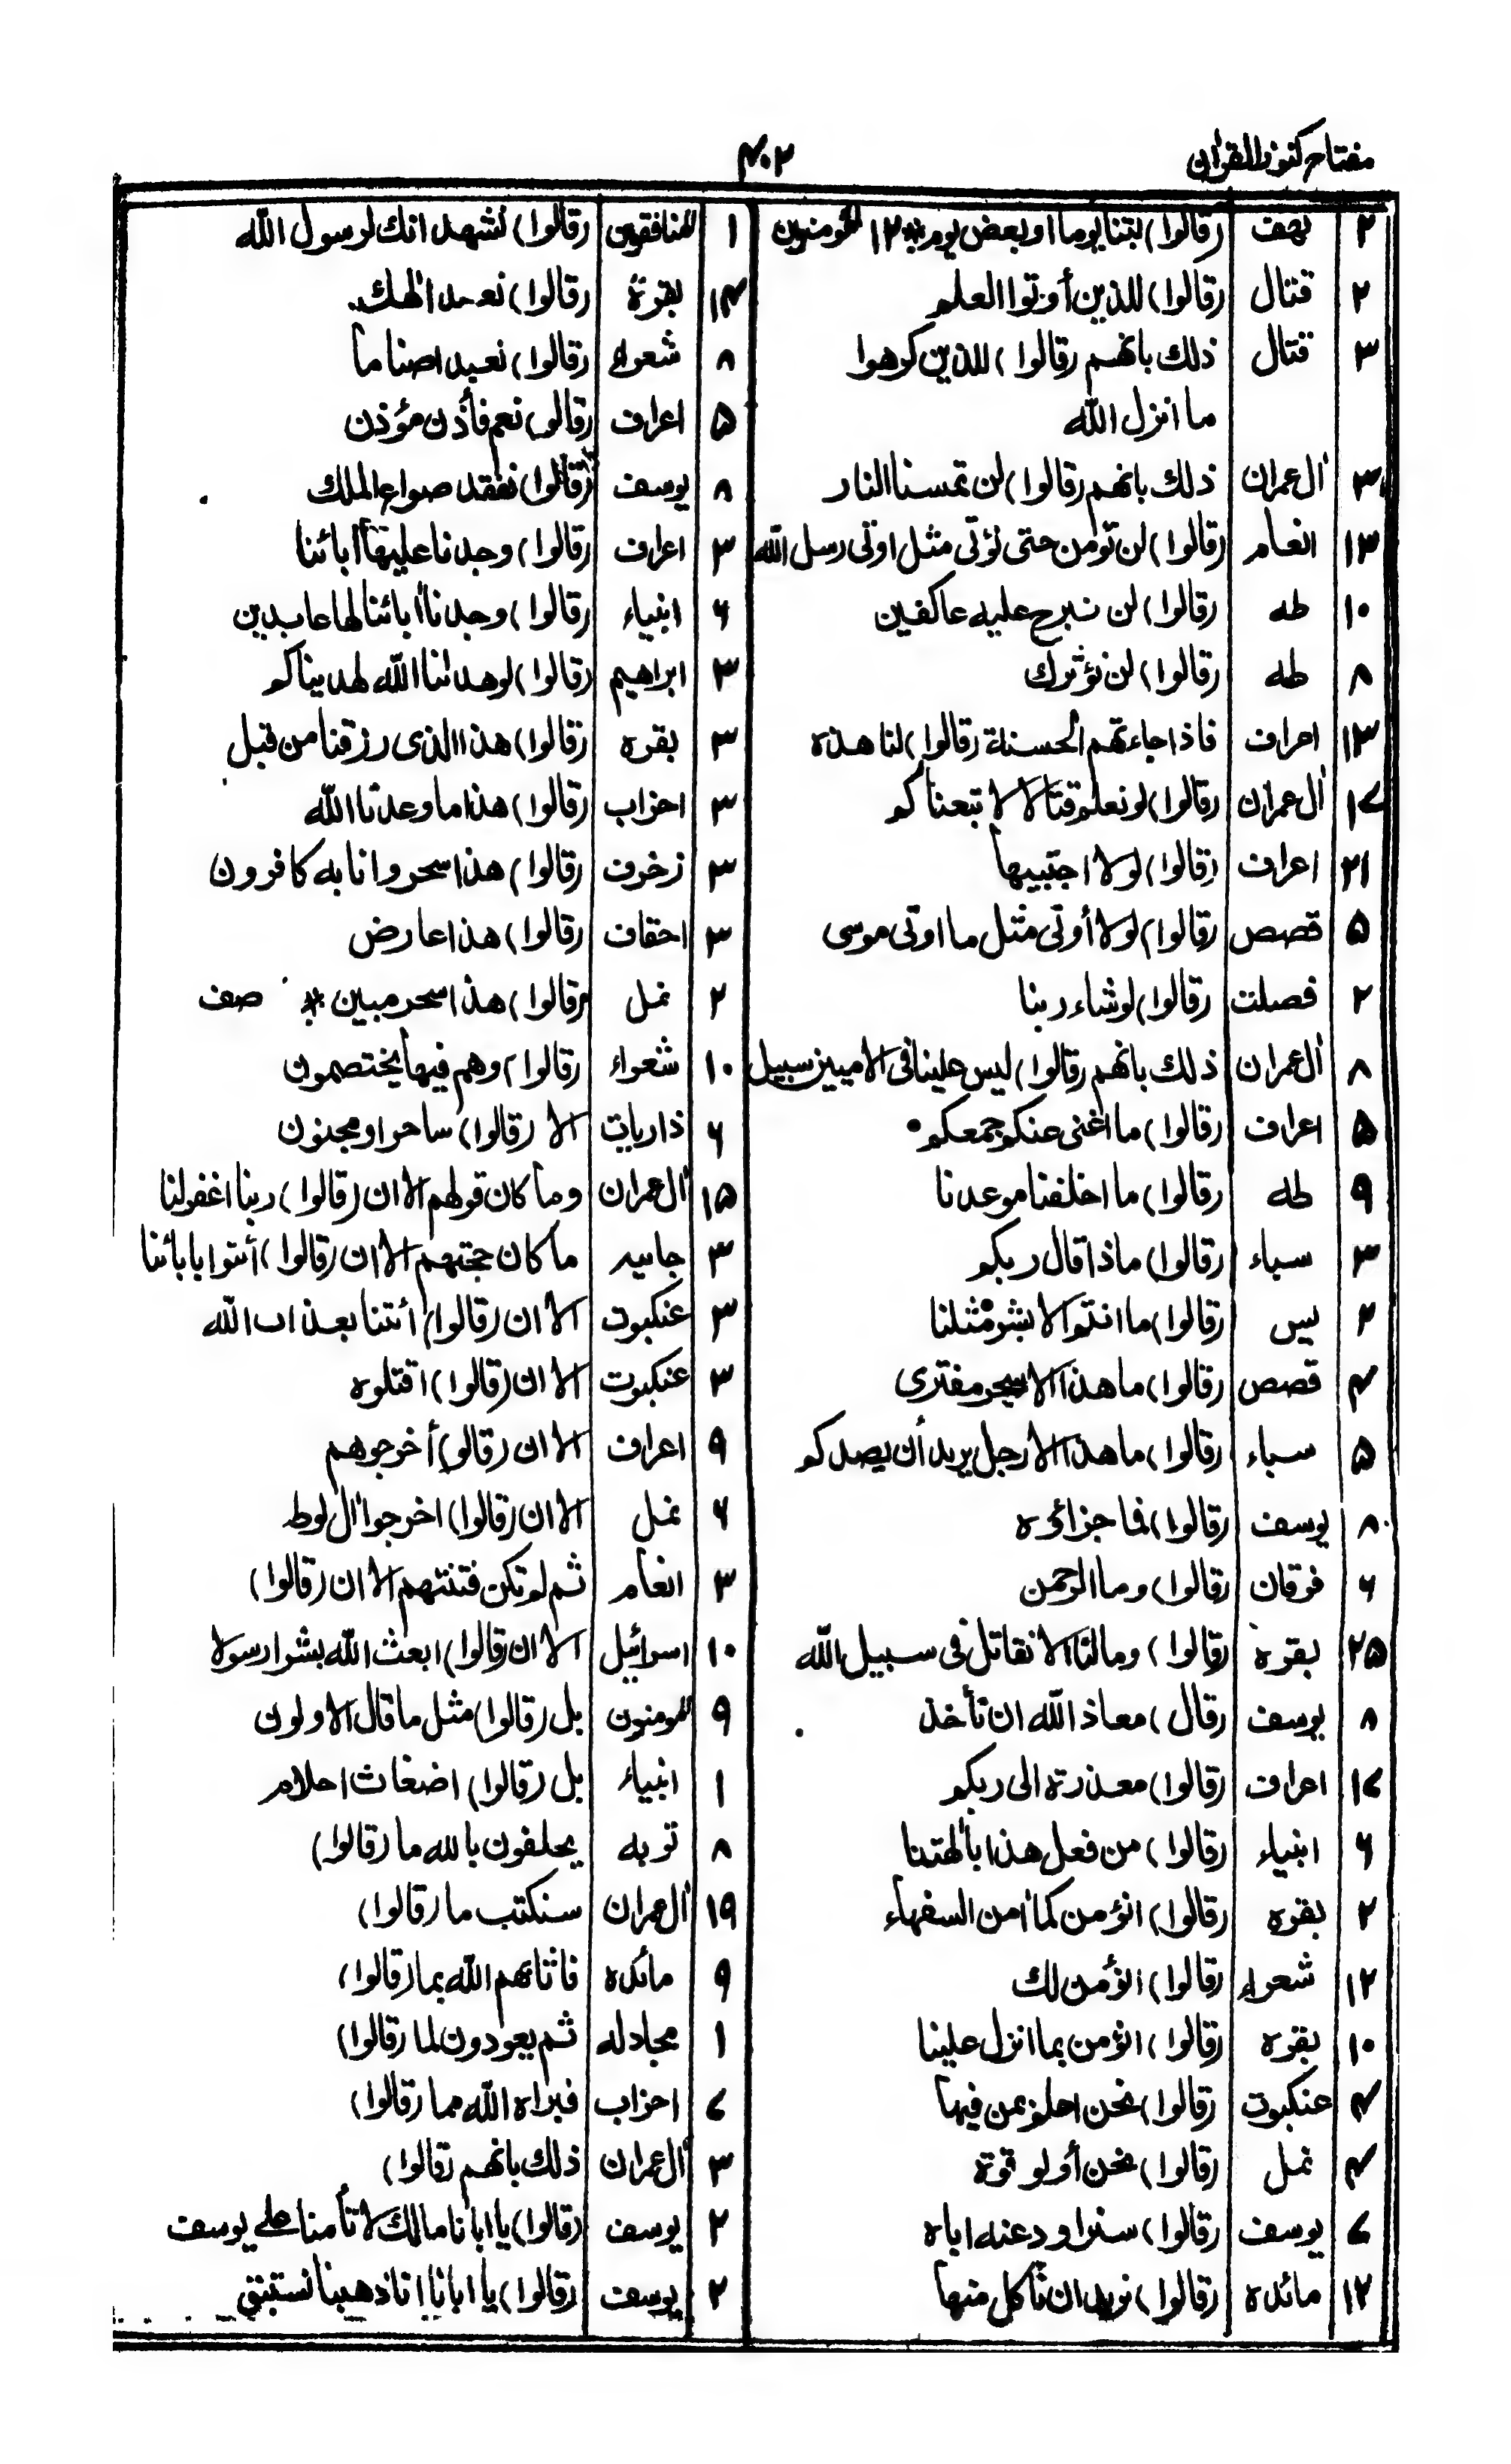 مفتاح كنوز القرآن
۴۰۲
۲ كهف (قالوا) لبثنا يوما او بعض يوم * ۱۲ المومنون
۲ قتال (قالوا) للذين أوتوا العلم
۳ قتال ذلك بانهم (قالوا) للذين كرهوا
ما انزل الله
۳ اٰل عمران ذلك بانهم (قالوا) لن تمسنا النار
۱۳ انعام (قالوا) لن نؤمن حتى نؤتى مثل اوتى رسل الله
۱۰ طه (قالوا) لن نبرح عليه عاكفين
۸ طه (قالوا) لن نؤثرك
۱۳ اعراف فاذا جاءتهم الحسنة (قالوا) لنا هذه
۱۷ اٰل عمران (قالوا) لو نعلم قتالا لاتبعناكم
۲۱ اعراف (قالوا) لولا اجتبيها
۵ قصص (قالوا) لولا أوتى مثل ما اوتى موسى
۲ فصلت (قالوا) لو شاء ربنا
۸ اٰل عمران ذلك بانهم (قالوا) ليس علينا فى الاميين سبيل
۵ اعراف (قالوا) ما اغنى عنكم جمعكم
۹ طه (قالوا) ما اخلفنا موعدنا
۳ سباء (قالوا) ماذا قال ربكم
۲ يس (قالوا) ما انتم الا بشر مثلنا
۴ قصص (قالوا) ما هذا الا سحر مفترى
۵ سباء (قالوا) ما هذا الا رجل يريد أن يصدكم
۸ يوسف (قالوا) فما جزائه
۶ فرقان (قالوا) وما الرحمن
۲۵ بقره (قالوا) وما لنا الا نقاتل فى سبيل الله
۸ يوسف (قال) معاذ الله ان نأخذ
۱۷ اعراف (قالوا) معذرة الى ربكم
۶ انبياء (قالوا) من فعل هذا بالهتنا
۲ بقره (قالوا) انؤمن كما اٰمن السفهاء
۱۲ شعراء (قالوا) انؤمن لك
۱۰ بقره (قالوا) انؤمن بما انزل علينا
۴ عنكبوت (قالوا) نحن اعلم بمن فيها
۴ نمل (قالوا) نحن أولو قوة
۷ يوسف (قالوا) سنراود عنه اباه
۱۲ مائده (قالوا) نريد ان نأكل منها
۱ المنافقون (قالوا) نشهد انك لرسول الله
۱۴ بقرة (قالوا) نعبد الهك
۸ شعراء (قالوا) نعبد اصناما
۵ اعراف (قالوا) نعم فأذن مؤذن
۸ يوسف (قالوا) نفقد صواع الملك
۳ اعراف (قالوا) وجدنا عليها اٰبائنا
۶ انبياء (قالوا) وجدنا اٰبائنا لها عابدين
۳ ابراهيم (قالوا) لو هدانا الله لهديناكم
۳ بقره (قالوا) هذا الذى رزقنا من قبل
۳ احزاب (قالوا) هذا ما وعدنا الله
۳ زخرف (قالوا) هذا سحر وانا به كافرون
۳ احقاف (قالوا) هذا عارض
۲ نمل (قالوا) هذا سحر مبين * صف
۱۰ شعراء (قالوا) وهم فيها يختصمون
۶ ذاريات الا (قالوا) ساحر او مجنون
۱۵ اٰل عمران وما كان قولهم الا ان (قالوا) ربنا اغفر لنا
۳ جاسيه ما كان حجتهم الا ان (قالوا) أئتوا بابائنا
۳ عنكبوت الا ان (قالوا) أئتنا بعذاب الله
۳ عنكبوت الا ان (قالوا) اقتلوه
۹ اعراف الا ان (قالوا) أخرجوهم
۶ نمل الا ان (قالوا) اخرجوا اٰل لوط
۳ انعام ثم لم تكن فتنتهم الا ان (قالوا)
۱۰ اسرائيل الا ان (قالوا) ابعث الله بشرا رسولا
۹ المومنون بل (قالوا) مثل ما قال الاولون
۱ انبياء بل (قالوا) اضغاث احلام
۸ توبه يحلفون بالله ما (قالوا)
۱۹ اٰل عمران سنكتب ما (قالوا)
۹ مائده فاثابهم الله بما (قالوا)
۱ مجادله ثم يعودون لما (قالوا)
۷ احزاب فبراه الله مما (قالوا)
۳ اٰل عمران ذلك بانهم (قالوا)
۲ يوسف (قالوا) يا ابانا مالك لا تأمنا على يوسف
۲ يوسف (قالوا) يا ابانا انا ذهبنا نستبق